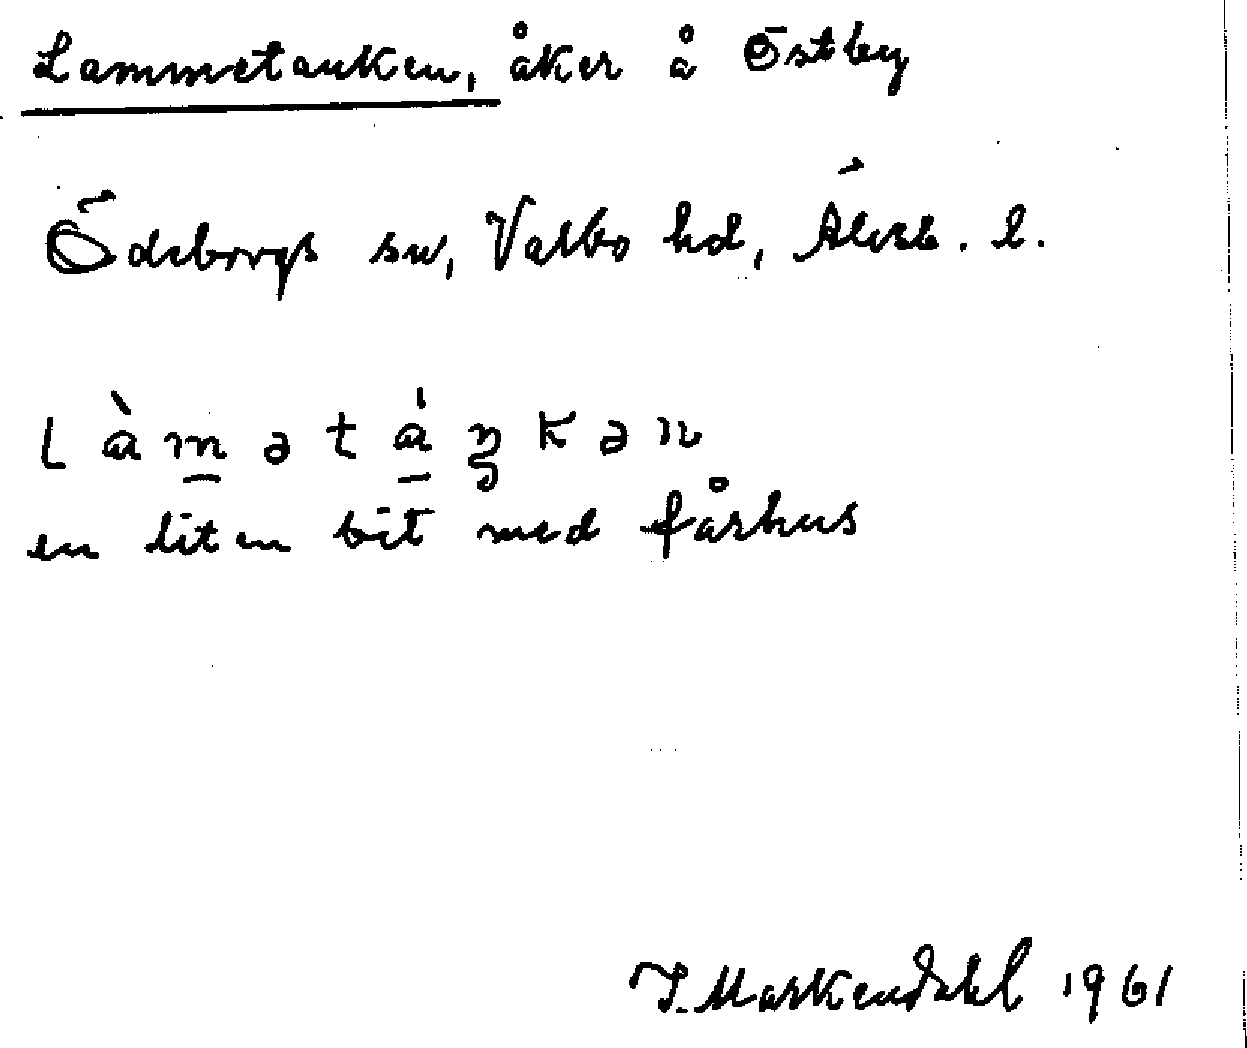 Lammetanken, åker å Östby
Ödeborgs sn, Valbo hd, Älvsb. l.
l à m̲ ə t á̲ ŋ k ə n
en liten bit med fårhus
I. Markendahl 1961